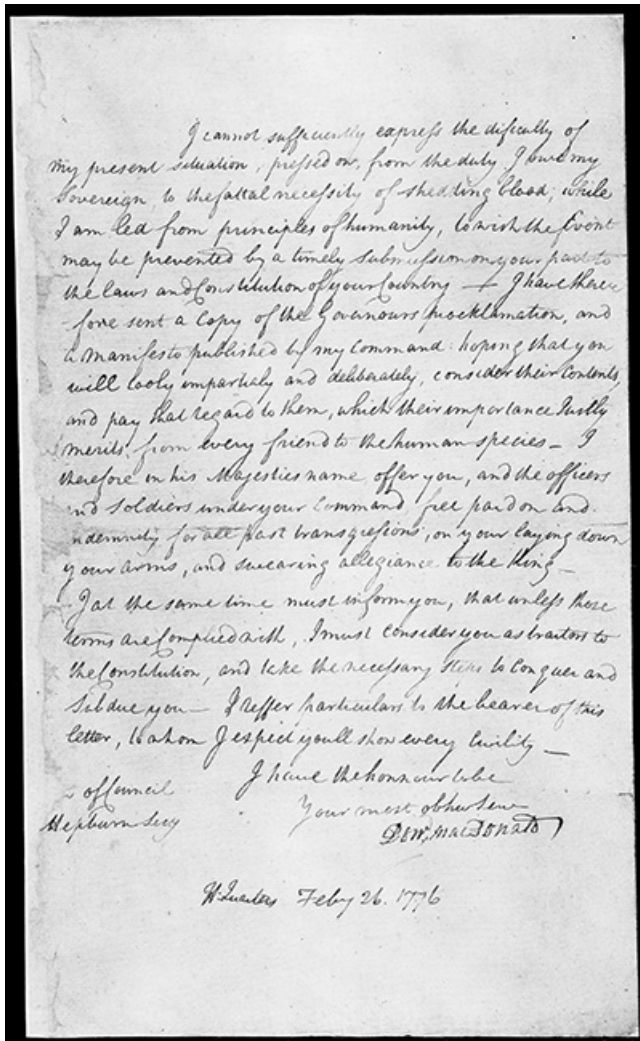 I cannot sufficiently express the dificulty of
my present situation, pressed on, from the duty I owe my
Sovereign, to the fattal necessity of shedding blood; while
I am led from principles of humanity, to wish the Event
may be prevented by a timely submission on your part to
the laws and Constitution of your Country — I have there
fore sent a Copy of the Governours proclamation, and
a manifesto published by my command: hoping that you
will cooly impartialy and deliberately, consider their Contents,
and pay that regard to them, which their importance Justly
merits, from every friend to the human species — I
therefore in his Majesties name, offer you, and the officers
nd Soldiers under your Command, free pardon and
ndemnity for all past transgresions, on your laying down
your arms, and swearing allegiance to the King —
I at the same time must inform you, that unless those
terms are Complied with, I must Consider you as traitors to
the Constitution, and take the necessary steps to Conquer and
Subdue you — I reffer particulars to the bearer of this
letter, to whom I expect youll show every Civility —
I have the honnour to be
of Council
Your most obt hum Serv
Hepburn Secy
Don. MacDonald
Hd Quarters Feby 26. 1776